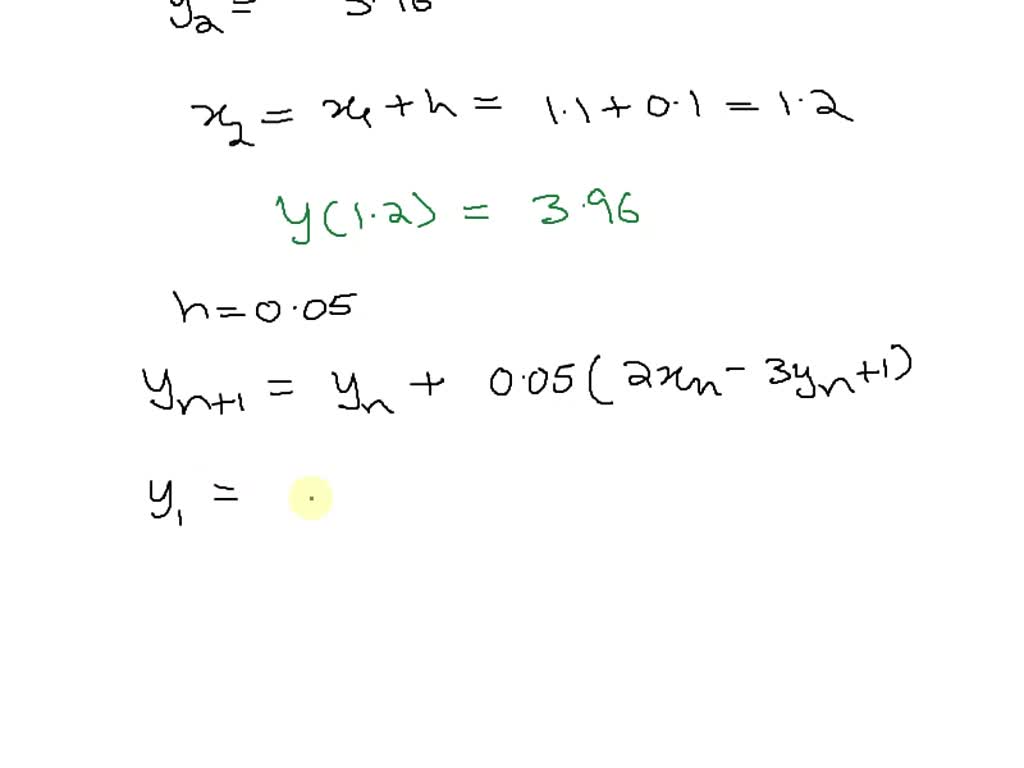 y₂ = 3.96
x₂ = x₁ + h = 1.1 + 0.1 = 1.2
y(1.2) = 3.96
h = 0.05
yₙ₊₁ = yₙ + 0.05(2xₙ - 3yₙ + 1)
y₁ =